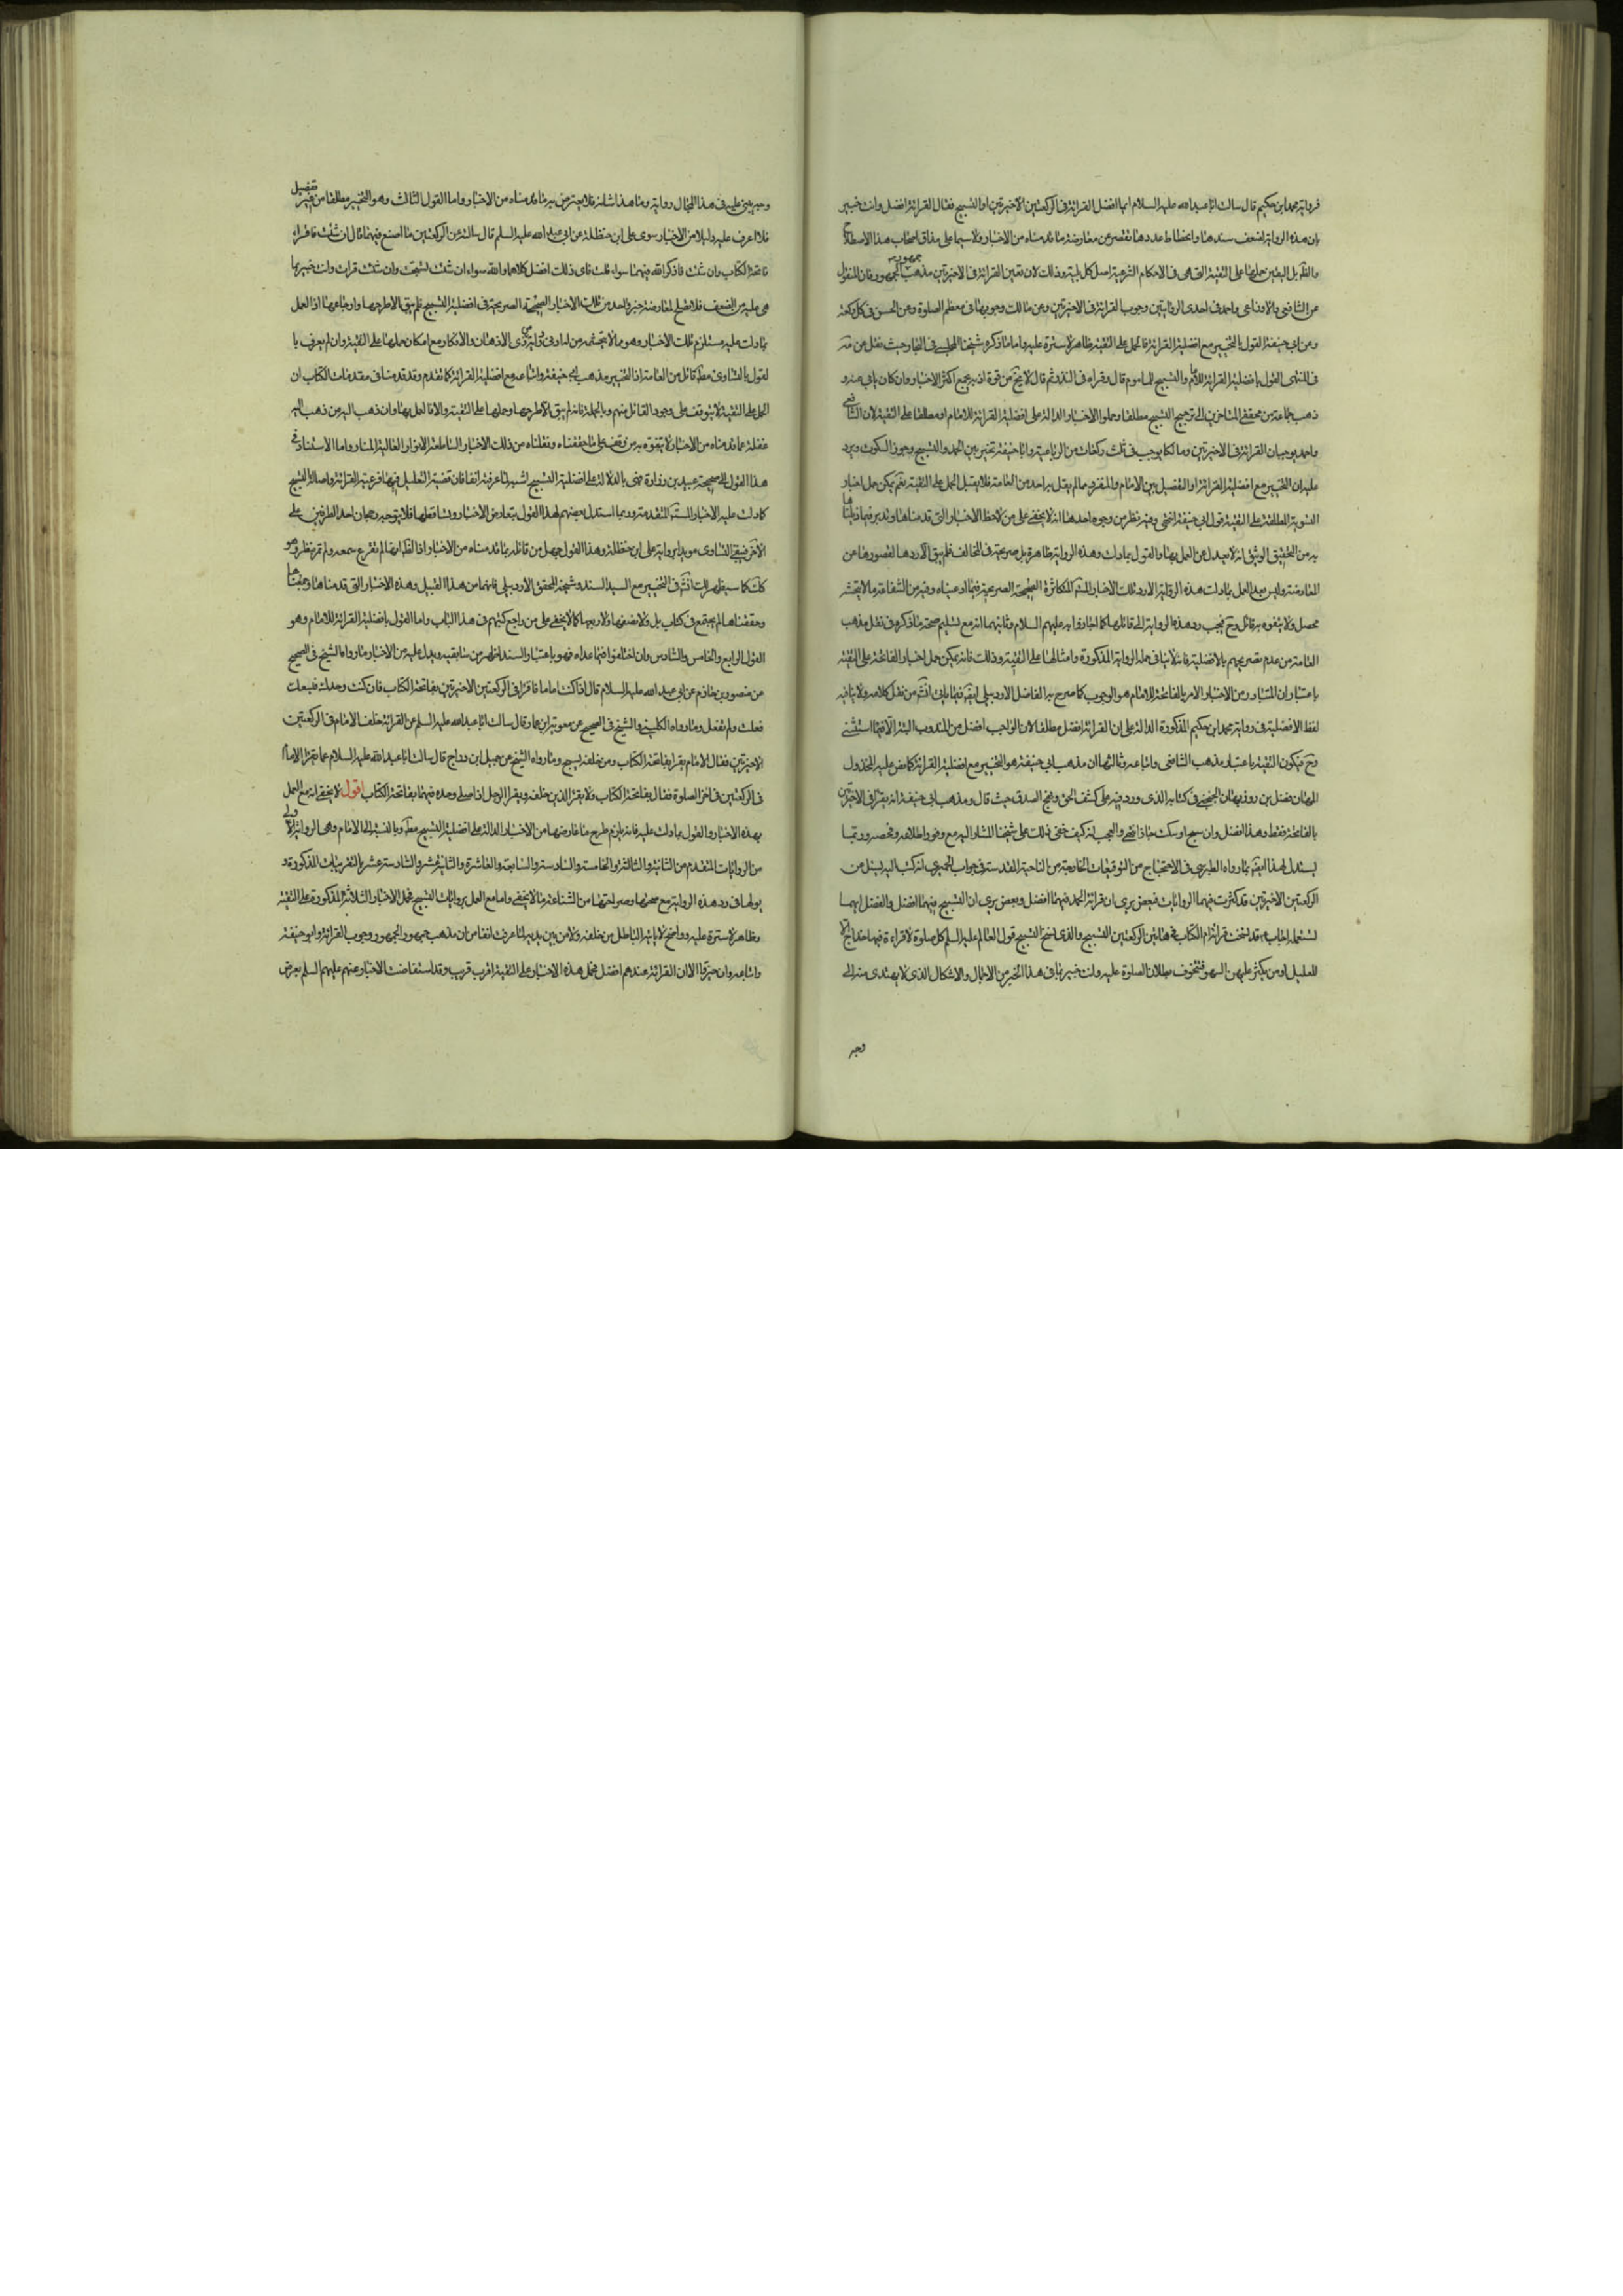 فرواية محمد ابن حكيم قال سالت ابا عبد الله عليه السلام ايما افضل القرائة فى الركعتين الاخيرتين او التسبيح فقال القرائة افضل وانت خبير
بان هذه الرواية لضعف سندها وانحطاط عددها تقصر عن معارضة ما قدمناه من الاخبار ولا سيما على مذاق اصحاب هذا الاصطلاح
والظ بل اليقين حملها على التقية التى هى فى الاحكام الشرعية اصل كل بلية وذلك لان تعين القرائة فى الاخيرتين مذهب جمهور الجمهور فان المنقول
عن الشافعى والاوزاعى واحمد فى احدى الروايتين وجوب القرائة فى الاخيرتين وعن مالك وجوبها فى معظم الصلوة وعن الحسن فى كل ركعة
وعن ابى حنيفة القول بالتخيير مع افضلية القرائة فالحمل على التقية ظاهر لا سترة عليه واما ما ذكره شيخنا المجلسى فى البحار حيث نقل عن مة
فى المنتهى القول بافضلية القرائة للامام والتسبيح للماموم قال وقراه فى التذكرة ثم قال لا يخ من قوة اذ به يجمع اكثر الاخبار وان كان يابى عنه و
ذهب جماعة من محققى المتاخرين الى ترجيح التسبيح مطلقا وحملوا الاخبار الدالة على افضلية القرائة للامام او مطلقا على التقية لان الشافعى
واحمد يوجبان القرائة فى الاخيرتين ومالكا يوجب فى ثلث ركعات من الرباعية وابا حنيفة تخير بين الحمد والتسبيح وجوز السكوت ويرد
عليه ان التخيير مع افضلية القرائة او التفصيل بين الامام والمنفرد مما لم يقل به احد من العامة فلا يقبل الحمل على التقية نعم يمكن حمل اخبار
التسوية المطلقة على التقية قول ابى حنيفة انتهى وفيه نظر من وجوه احدها انه لا يخفى على من لاحظ الاخبار التى قدمناها وتدبر فيها وذيلناها
به من التحقيق الوثيق انه لا معدل عن العمل بها والقول بما دلت وهذه الرواية ظاهرة بل صريحة فى المخالف فلم يبق الا ردها لقصورها عن
المعارضة وليس بعد العمل بما دلت هذه الرواية الا رد تلك الاخبار المتكاثرة الصحيحة الصريحة فيما ادعيناه وفيه من الشفاعة ما لا يتجشمه
محصل ولا يتفوه به قائل وح فيجب رد هذه الرواية الى قائلها كما اخبروا به عليهم السلام وثانيهما انه مع تسليم صحة ما ذكره فى نقل مذهب
العامة من عدم تصريحهم بالافضلية فانه لا ينافى حمله الرواية المذكورة وامثالها على التقية وذلك فانه يمكن حمل اخبار الفاتحة على التقية
باعتبار ان المتبادر من الاخبار الامر بالفاتحة للامام هو الوجوب كما صرح به الفاضل الاردبيلى ايضا فيما ياتى انش من نقل كلامه ولا ينافيه
لفظ الافضلية فى رواية محمد ابن حكيم المذكورة الدالة على ان القرائة افضل مطلقا لان الواجب افضل من المندوب البتة الا فيما استثنى
وح فيكون التقية باعتبار مذهب الشافعى واتباعه وثالثها ان مذهب ابى حنيفة هو التخيير مع افضلية القرائة كما نص عليه المخذول
المهان فضل بن روزبهان فى كتابه الذى رد فيه على كشف الحق ونهج الصدق حيث قال ومذهب ابى حنيفة انه يقرا فى الاخيرتين
بالفاتحة فقط وهذا افضل وان سبح او سكت جاز انتهى والعجب انه كيف خفى ذلك على شيخنا المشار اليه مع وفور اطلاعه وفحصه وربما
يستدل لهذا ايضا بما رواه الطبرسى فى الاحتجاج من التوقيعات الخارجة من الناحية المقدسة فى جواب الحميرى انه كتب اليه يسئل عن
الركعتين الاخيرتين قد كثرت فيهما الروايات فبعض يرى ان قرائة الحمد فيهما افضل وبعض يرى ان التسبيح فيهما افضل والفضل ايهما
لنستعمله اجاب ع قد نسخت قرائة ام الكتاب فى هاتين الركعتين التسبيح والذى نسخ التسبيح قول العالم عليه السلم كل صلوة لا قراءة فيها خداج الا
للعليل او من يكثر عليه السهو فيتخوف بطلان الصلوة عليه وانت خبير بما فى هذا الخبر من الاجمال والاشكال الذى لا يهتدى منه الى
وجه
وجه يبنى عليه فى هذا المجال رواية وما هذا شانه فلا يعترض به ما قدمناه من الاخبار واما القول الثالث وهو التخيير مطلقا من غير تفضيل
فلا اعرف عليه دليلا من الاخبار سوى على ابن حنظلة عن ابى عبد الله عليه السلم قال سالته عن الركعتين ما اصنع فيهما قال ان شئت فاقراء
فاتحة الكتاب وان شئت فاذكر الله فيهما سواء قلت فاى ذلك افضل كلاهما والله سواء ان شئت لسبحت وان شئت قرات وانت خبير بما
هى عليه من الضعف فلا تصلح لمعارضة خبر واحد من تلك الاخبار الصحيحة الصريحة فى افضلية التسبيح فلم يبق الا طرحها وارجاعها اذ العمل
بما دلت عليه مستلزم تلك الاخبار وهو مما لا يتجشمه من له ادنى روية من ذوى الاذهان والافكار مع امكان حملها على التقية وان لم يعرف با
لقول بالتساوى مط قائل من العامة اذ التخيير مذهب ابى حنيفة واتباعه مع افضلية القرائة كما تقدم وقد قدمنا فى مقدمات الكتاب ان
الحمل على التقية لا يتوقف على وجود القائل منهم وبالجملة فانه لم يبق الا طرحها وحملها على التقية والا فالعمل بها وان ذهب اليه من ذهب اليه
غفلة عما قدمناه من الاخبار لا يتفوه به من وقف على ما حققناه ونقلناه من ذلك الاخبار الساطعة الانوار العالية المنار واما الاستناد فى
هذا القول الى صحيحة عبيد بن زرارة فهى بالدلالة على افضلية التسبيح اشبه لما عرفته انفا فان قضية التعليل فيها فرعية القرائة واصالة التسبيح
كما دلت عليه الاخبار المتقدمة وربما استدل بعضهم لهذا القول بتعارض الاخبار وتساقطها فلا يتوجه رجحان احد الطرفين على
الاخر فيبقى التساوى مويدا برواية على ابن حنظلة وهذا القول جهل من قائله بما قدمناه من الاخبار اذ الظ انها لم تقرع سمعه ولم تمر بنظره وهو
كك كما سيظهر لك انش فى التخيير مع السيد السند وشيخه المحقق الاردبيلى فانهما من هذا القبيل وهذه الاخبار التى قدمناها
وحققناها لم يجتمع فى كتاب بل ولا نصفها ولا ربعها كما لا يخفى على من راجع كتبهم فى هذا الباب واما القول بافضلية القرائة للامام وهو
القول الرابع والخامس والسادس وان اختلفوا فيما عداه فهو باعتبار السند اظهر من سابقيه ويدل عليه من الاخبار ما رواه الشيخ فى الصحيح
عن منصور بن حازم عن ابى عبد الله عليه السلام قال اذا كنت اماما فاقرا فى الركعتين الاخيرتين بفاتحة الكتاب فان كنت وحدك فيسعك
فعلت ولم تفعل وما رواه الكلينى والشيخ فى الصحيح عن معوية ابن عمار قال سالت ابا عبد الله عليه السلم عن القرائة خلف الامام فى الركعتين
الاخيرتين فقال الامام يقرا بفاتحة الكتاب ومن خلفه يسبح وما رواه الشيخ عن جميل ابن دراج قال سالت ابا عبد الله عليه السلام عما يقرا الامام
فى الركعتين فى اخر الصلوة فقال بفاتحة الكتاب ولا يقرا الذين خلفه ويقرا الرجل اذا صلى وحده فيهما بفاتحة الكتاب اقول لا يخفى انه مع العمل
بهذه الاخبار والقول بما دلت عليه فانه يلزم طرح ما عارضها من الاخبار الدالة على افضلية التسبيح مط وبالنسبة الى الامام وهى الرواية الاولى
من الروايات المتقدم من الثانية والثالثة والخامسة والسادسة والسابعة والعاشرة والثانية عشر والسادسة عشر بالتقريبات المذكورة و
يولها فى رد هذه الرواية مع صحتها وصراحتها من الشناعة ما لا يخفى واما مع العمل بروايات التسبيح فحمل الاخبار الثلاثة المذكورة على التقية
وظاهر لا سترة عليه وواضح لا ياتيه الباطل من خلفه ولا من بين يديه لما عرفت انفا من ان مذهب جمهور الجمهور وجوب القرائة وابو حنيفة
واتباعه وان خيروا الا ان القرائة عندهم افضل فحمل هذه الاخبار على التقية اقرب قريب وقد استفاضت الاخبار عنهم عليهم السلم بعرض